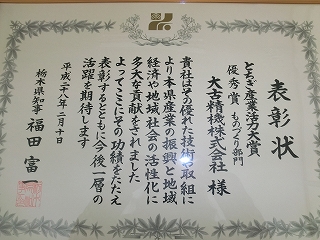 表彰状
とちぎ産業活力大賞
優秀賞 ものづくり部門
大古精機株式会社 様
貴社はその優れた技術や取組に
より本県産業の振興と地域
経済や地域社会の活性化に
多大な貢献をされました
よってここにその功績をたたえ
表彰するとともに今後一層の
活躍を期待します
平成二十八年二月十日
栃木県知事 福田富一